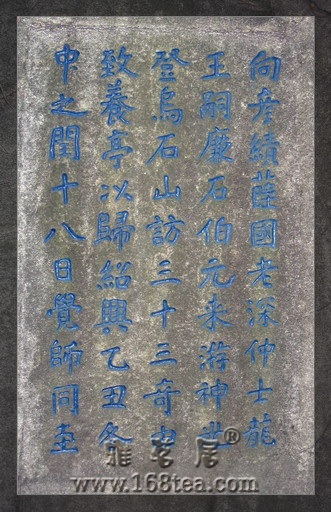 向彥績薛國老深仲士龍
王嗣廉石伯元来游神光
登烏石山訪三十三奇由
致養亭以歸紹興乙丑冬
中之閏十八日覺師同
雅茗居®
www.168tea.com